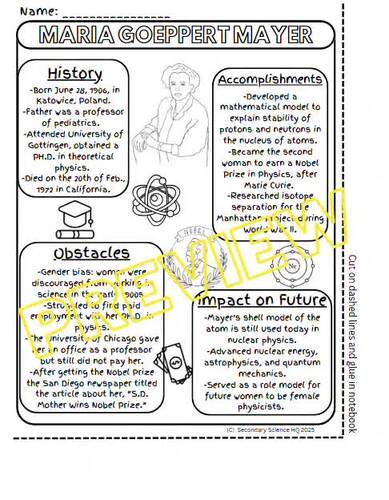 Name:
MARIA GOEPPERT MAYER
History
-Born June 28, 1906, in
Katowice, Poland.
-Father was a professor
of pediatrics.
-Attended University of
Gottingen, obtained a
PH.D. in theoretical
physics.
-Died on the 20th of Feb.,
1972 in California.
Accomplishments
-Developed a
mathematical model to
explain stability of
protons and neutrons in
the nucleus of atoms.
-Became the second
woman to earn a Nobel
Prize in Physics, after
Marie Curie.
-Researched isotope
separation for the
Manhattan Project during
World War II.
NOBEL
Ne
Obstacles
-Gender bias: women were
discouraged from working in
science in the early 1900s
-Struggled to find paid
employment with her Ph.D. in
physics.
-The University of Chicago gave
her an office as a professor
but still did not pay her.
-After getting the Nobel Prize
the San Diego newspaper titled
the article about her, "S.D.
Mother Wins Nobel Prize."
Impact on Future
-Mayer's shell model of the
atom is still used today in
nuclear physics.
-Advanced nuclear energy,
astrophysics, and quantum
mechanics.
-Served as a role model for
future women to be female
physicists.
Cut on dashed lines and glue in notebook
(C) Secondary Science HQ 2025
PREVIEW